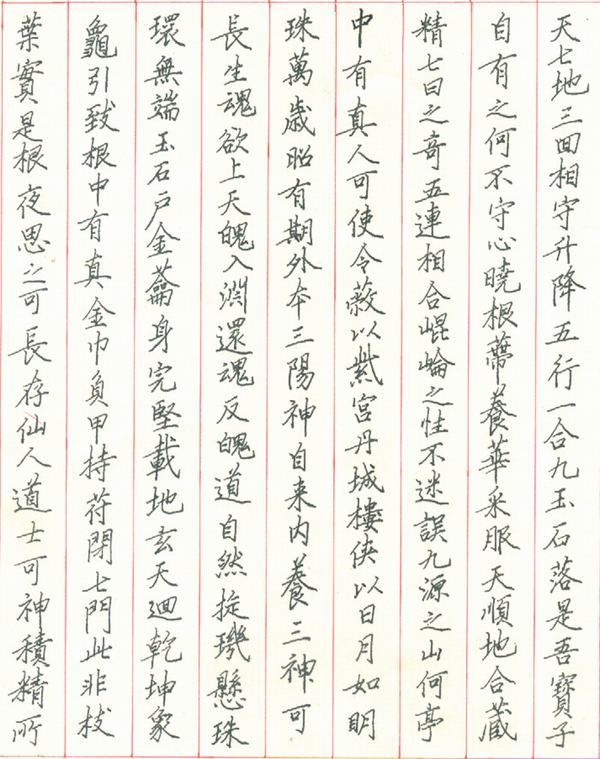 天七地三回相守升降五行一合九玉石落是吾寶子
自有之何不守心曉根蒂養華采服天順地合藏
精七日之奇五連相合崐崘之性不迷誤九源之山何亭
中有真人可使令蔽以紫宮丹城樓俠以日月如明
珠萬歲昭有期外本三陽神自来内養三神可
長生魂欲上天魄入淵還魂反魄道自然掟璣懸珠
環無端玉石戶金蘥身完堅載地玄天迴乾坤象
龜引致根中有真金巾負甲持苻閉七門此非枝
葉實是根夜思之可長存仙人道士可神積精所